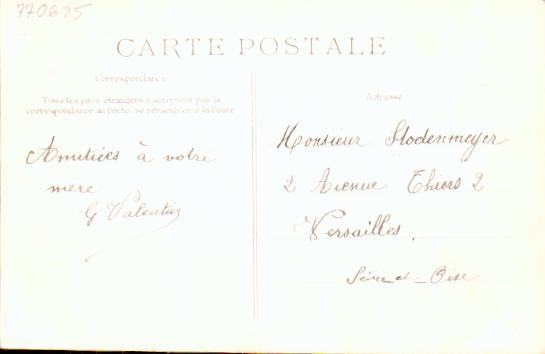 770695
CARTE POSTALE
Correspondance
Tous les pays étrangers n'acceptent pas la
correspondance au recto, se renseigner à la Poste
Adresse
Amitiées à votre
mère
G Valentin
Monsieur Hodenmeyer
2 Avenue Thiers 2
Versailles.
Seine-et-Oise